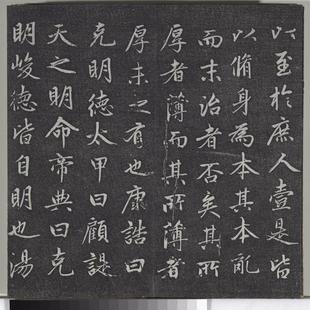 以至於庶人壹是皆
以脩身為本其本亂
而末治者否矣其所
厚者薄而其所薄者
厚未之有也康誥曰
克明德太甲曰顧諟
天之明命帝典曰克
明峻德皆自明也湯